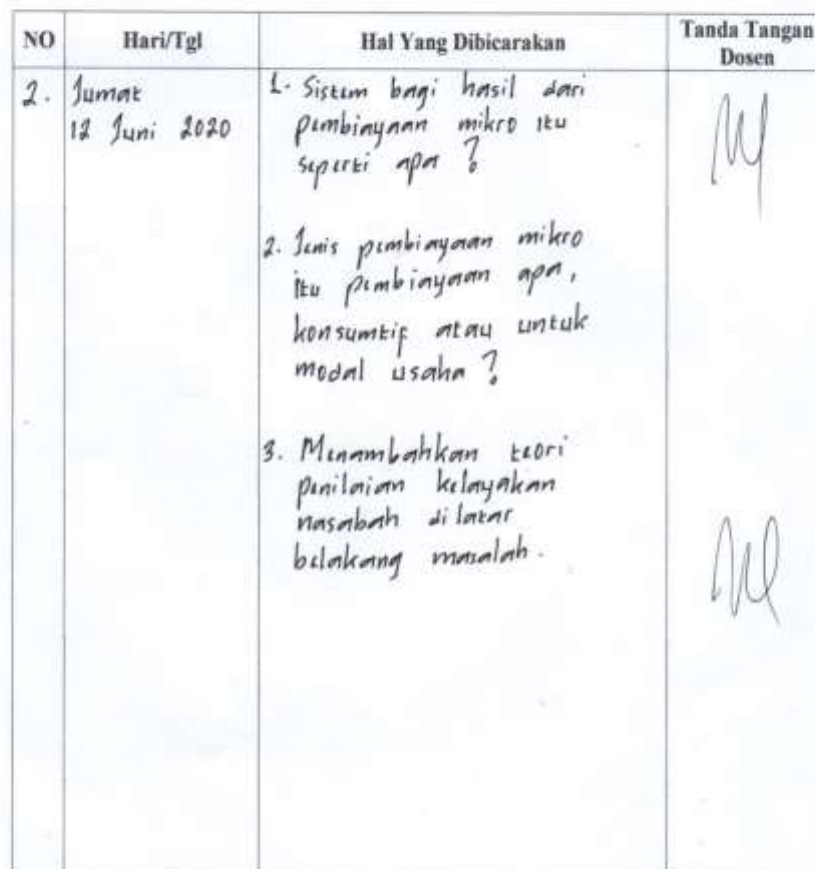 NO Hari/Tgl Hal Yang Dibicarakan Tanda Tangan
Dosen
2. Jumat
12 Juni 2020
1. Sistem bagi hasil dari
pembiayaan mikro itu
seperti apa ?
2. Jenis pembiayaan mikro
itu pembiayaan apa,
konsumtif atau untuk
modal usaha ?
3. Menambahkan teori
penilaian kelayakan
nasabah di latar
belakang masalah.